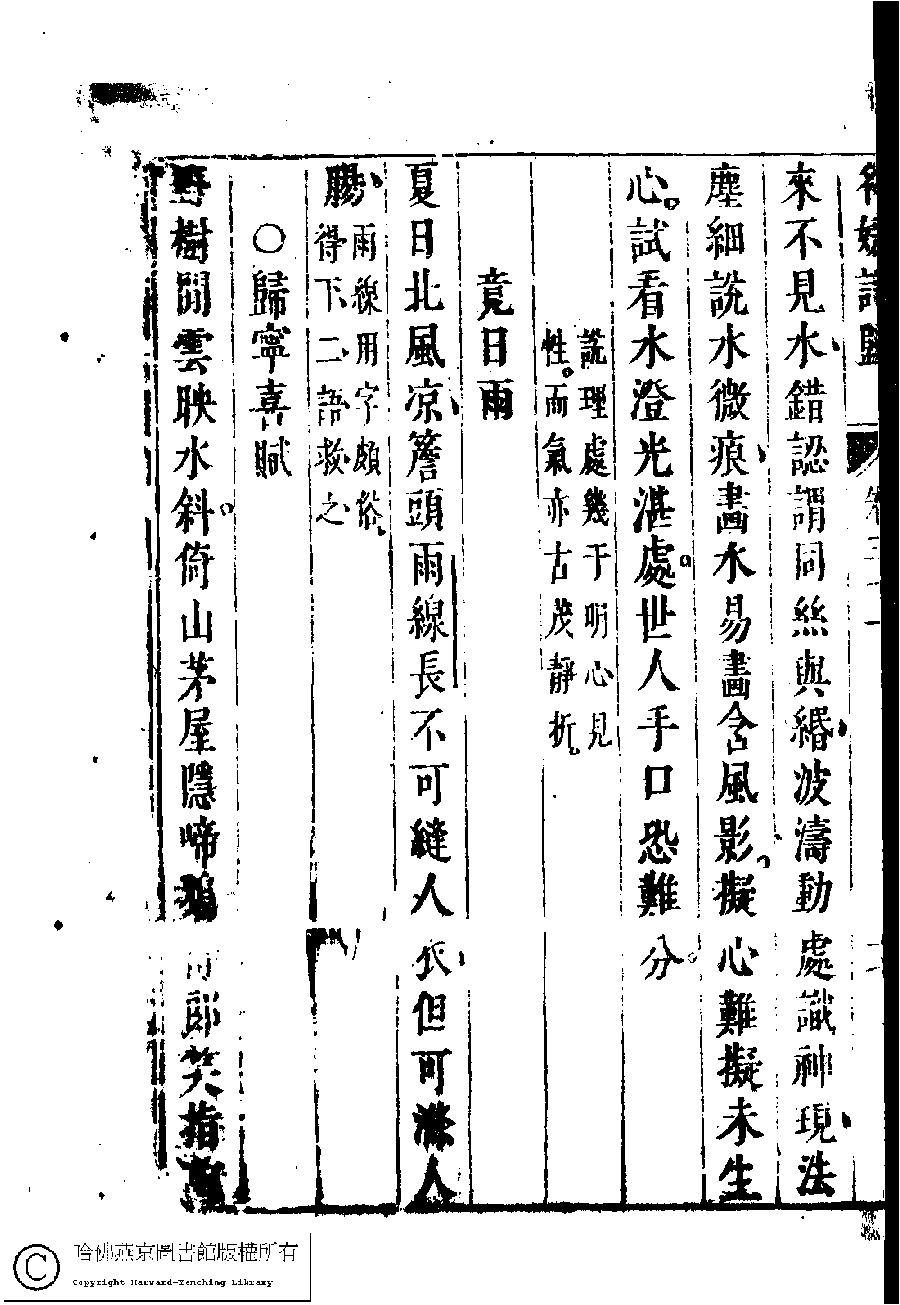 名媛詩歸 卷三十一
來不見水錯認謂同絲與緡波濤動處識神現法
塵細說水微痕畫水易畫含風影擬心難擬未生
心試看水澄光湛處世人手口恐難分
說理處幾于明心見
性而氣亦古茂靜折
竟日雨
夏日北風凉簷頭雨線長不可縫人衣但可滌人
腸
雨線用字頗俗
得下二語救之
○歸寧喜賦
野樹開雲映水斜倚山茅屋隱啼鴉 郎笑指
哈佛燕京圖書館版權所有
Copyright Harvard-Yenching Library